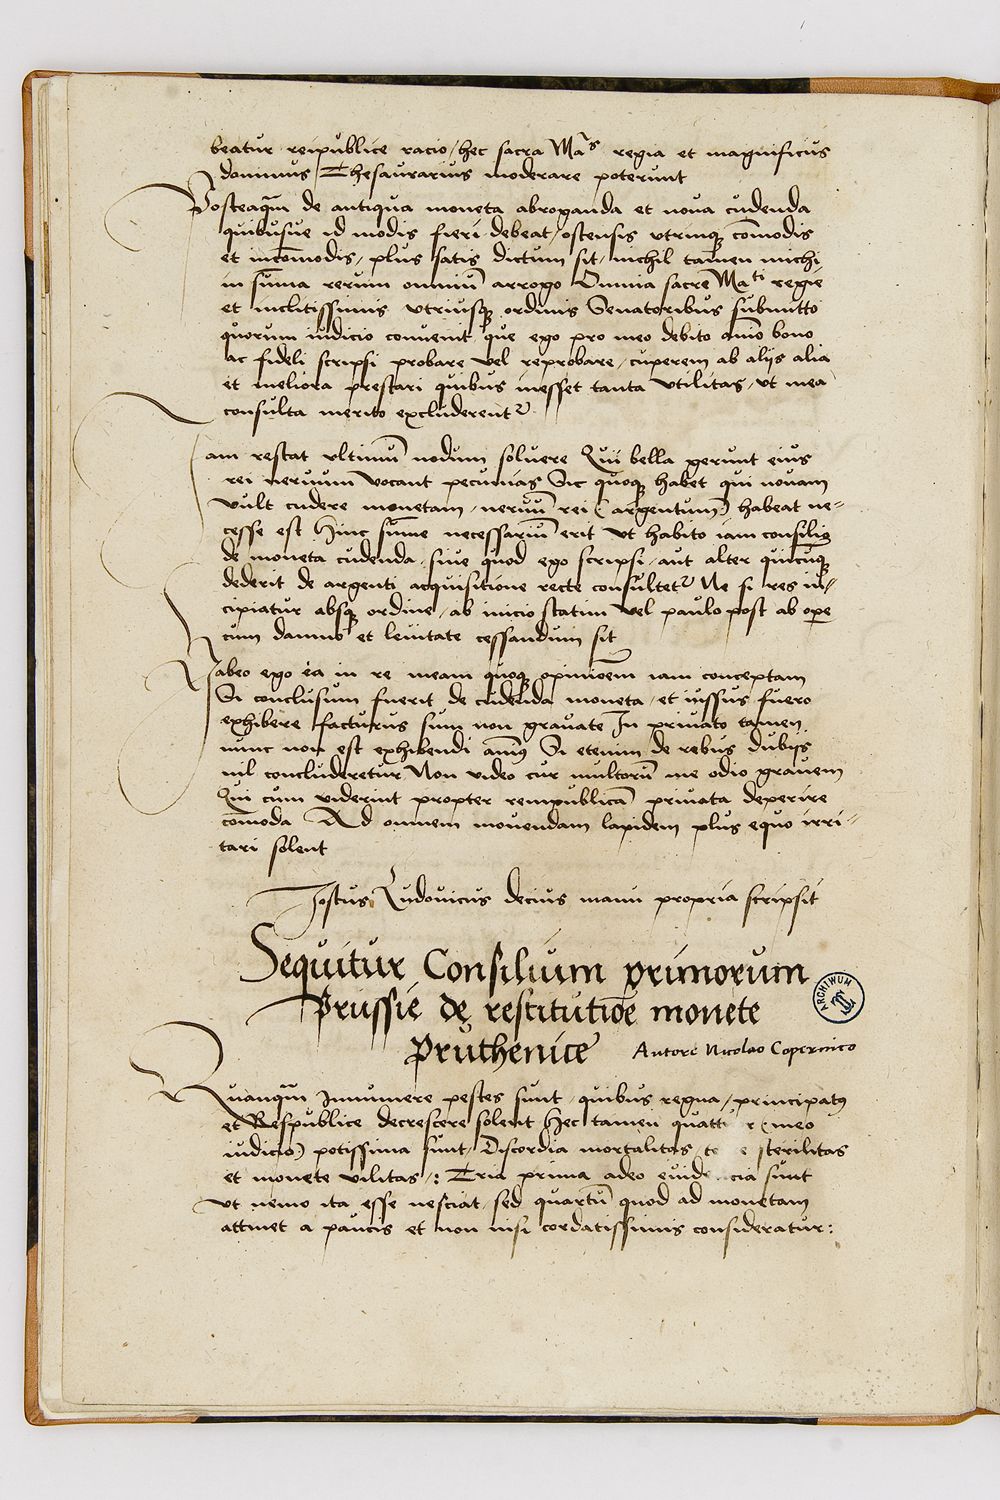 beatur reipublice racio / hec sacra Ma^s regia et magnificus
dominus Thesaurarius moderare poterunt
Posteaqm̄ de antiqua moneta abroganda et noua cudenda
quibusue id modis fieri debeat / ostensis vtrinq̢ com̄odis
et incom̄odis / plus satis dictum sit / nichil tamen michi
in sum̄a rerum omniū arrogo Omnia sacre Ma^ti regie
et inclitissimis vtriusq̢ ordinis Senatoribus submitto
quorum iudicio conuenit que ego pro meo debito anīo bono
ac fideli scripsi probare vel reprobare / cuperem ab alijs alia
et meliora prestari quibus inesset tanta vtilitas / vt mea
consulta merito excluderent^r
Iam restat vltimū nodum soluere Qui bella gerunt eius
rei neruum vocant pecunias Sic quoq̢ habet qui nouam
vult cudere monetam / neruū rei (argentum) habeat ne=
cesse est Hinc sum̄e necessariū erit vt habito iam consilio
de moneta cudenda / siue quod ego scripsi / aut alter quicunq̢
dederit de argenti acquisitione recte consultet^r Ne si res in=
cipiatur absq̢ ordine / ab inicio statim vel paulo post ab ope
cum damno et leuitate cessandum sit
Habeo ego ea in re meam quoq̢ opinioēm iam conceptam
Si conclusum fuerit de cudenda moneta / et iussus fuero
exhibere facturus sum non grauate In priuato tamen
nunc non est exhibendi anim̄9 Si etenim de rebus dubijs
nil concluderetur Non video cur multorū me odio grauem
Qui cum viderint propter rempublicā priuata deperire
com̄oda Ad omnem mouendam lapidem plus equo irri=
tari solent
Jostus Ludouicus decius manu propria scripsit
Sequitur Consilium primorum
Prussie de restitutiōe monete
Pruthenice Autore Nicolao Copernico
ARCHIWUM
Quanqm̄ Innumere pestes sunt / quibus regna / principat9
et Respublice decrescere solent Hec tamen (meo
iudicio) potissima sunt / Discordia mortalitas sterilitas
et monete vilitas /: Tria prima adeo sunt
vt nemo ita esse nesciat / sed quartū quod ad monetam
attinet a paucis et non nisi cordatissimis consideratur: